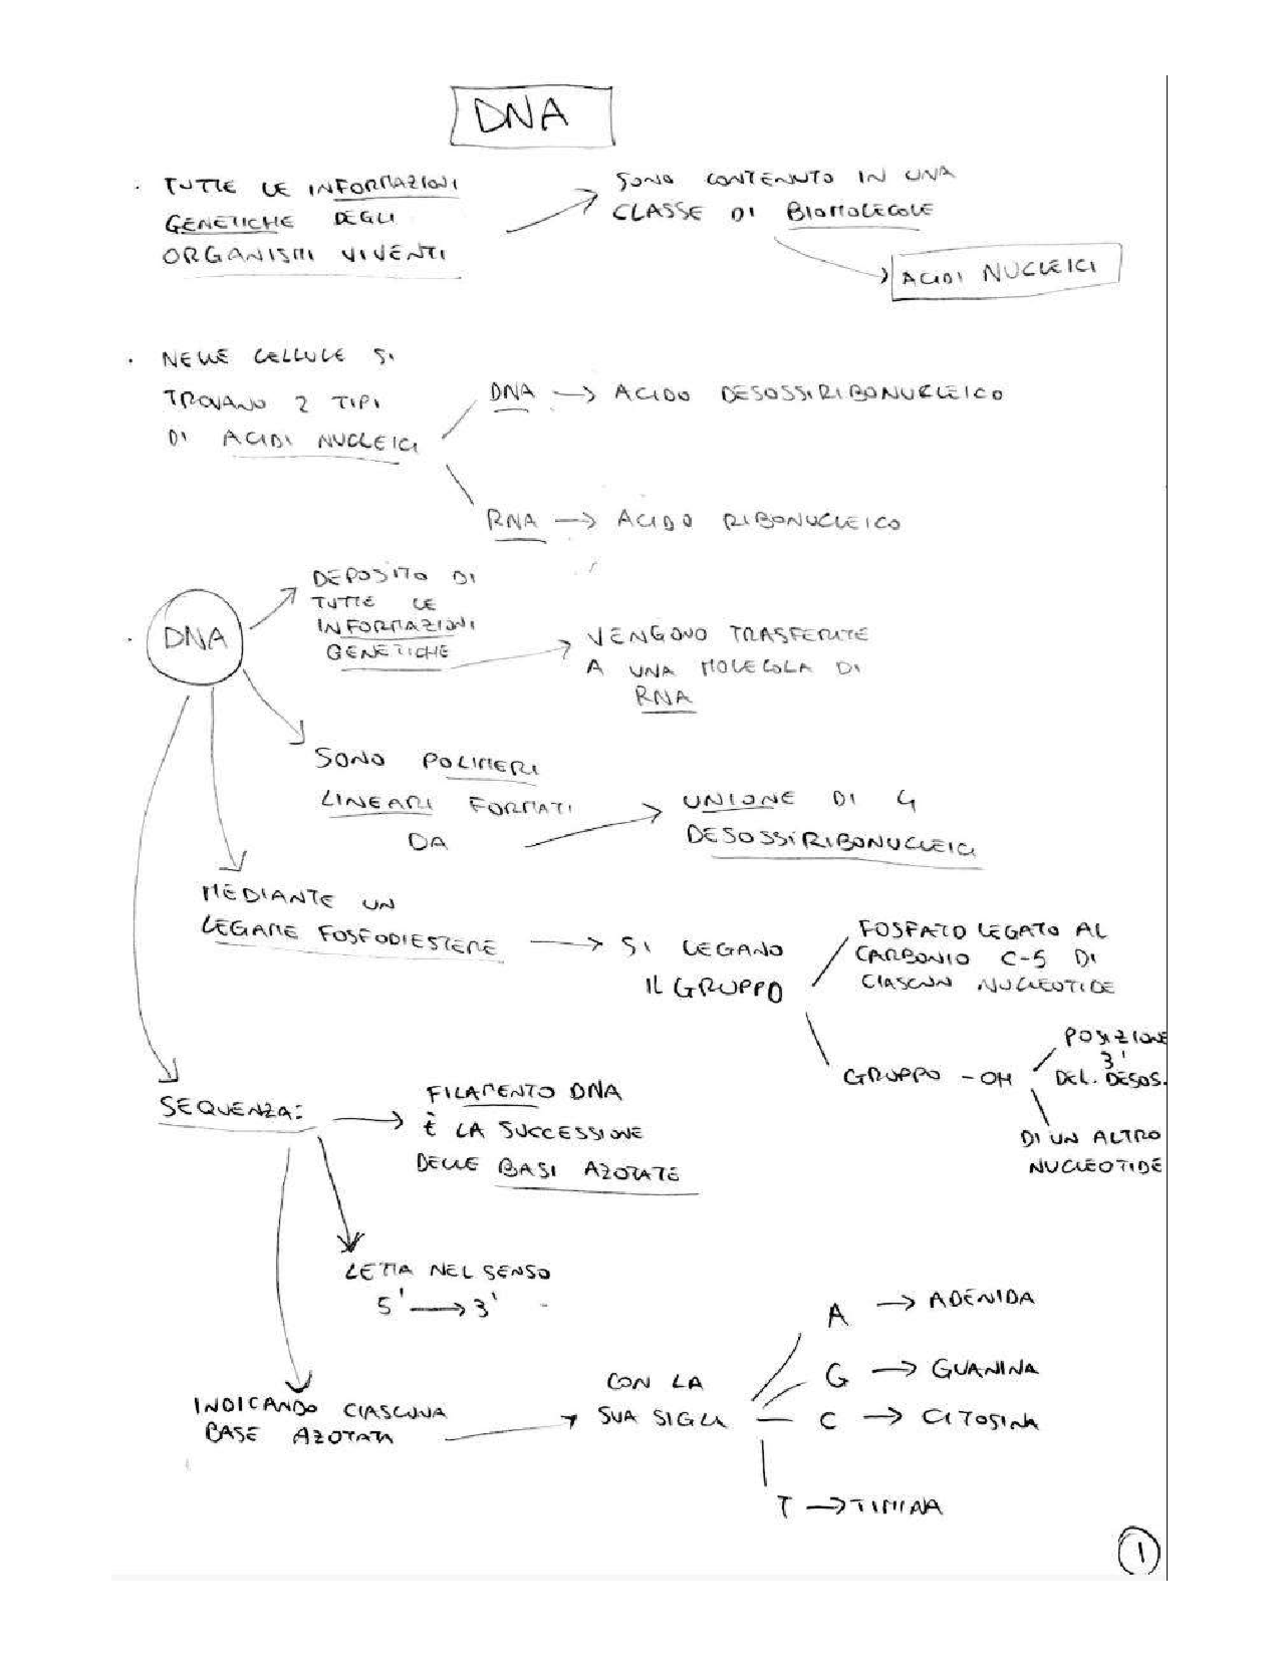 DNA
. TUTTE LE INFORMAZIONI
GENETICHE DEGLI
ORGANISMI VIVENTI
SONO CONTENUTO IN UNA
CLASSE DI BIOMOLECOLE
ACIDI NUCLEICI
. NELLE CELLULE SI
TROVANO 2 TIPI
DI ACIDI NUCLEICI
DNA → ACIDO DESOSSIRIBONUCLEICO
RNA → ACIDO RIBONUCLEICO
. DNA
DEPOSITO DI
TUTTE LE
INFORMAZIONI
GENETICHE
VENGONO TRASFERITE
A UNA MOLECOLA DI
RNA
SONO POLIMERI
LINEARI FORMATI
DA
UNIONE DI 4
DESOSSIRIBONUCLEICI
MEDIANTE UN
LEGAME FOSFODIESTERE → SI LEGANO
IL GRUPPO
FOSFATO LEGATO AL
CARBONIO C-5 DI
CIASCUN NUCLEOTIDE
GRUPPO -OH
POSIZIONE
3'
DEL. DESOS.
DI UN ALTRO
NUCLEOTIDE
SEQUENZA:
FILAMENTO DNA
È LA SUCCESSIONE
DELLE BASI AZOTATE
LETTA NEL SENSO
5' → 3'
INDICANDO CIASCUNA
BASE AZOTATA
CON LA
SUA SIGLA
A → ADENIDA
G → GUANINA
C → CITOSINA
T → TIMINA
1